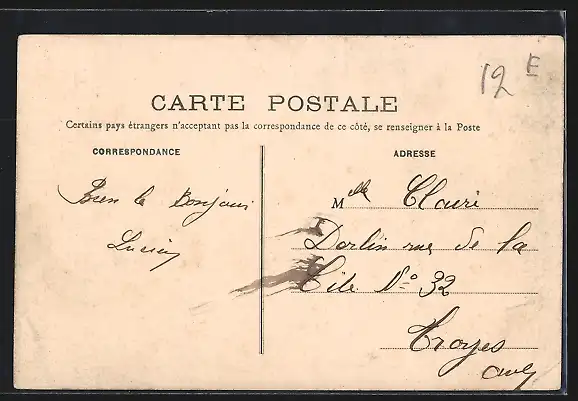 12 E
CARTE POSTALE
Certains pays étrangers n'acceptant pas la correspondance de ce côté, se renseigner à la Poste
CORRESPONDANCE
ADRESSE
Bien le Bonjour
Lucien
Melle Clairi
Dorlin rue de la
Cité No 32
Troyes
Aube